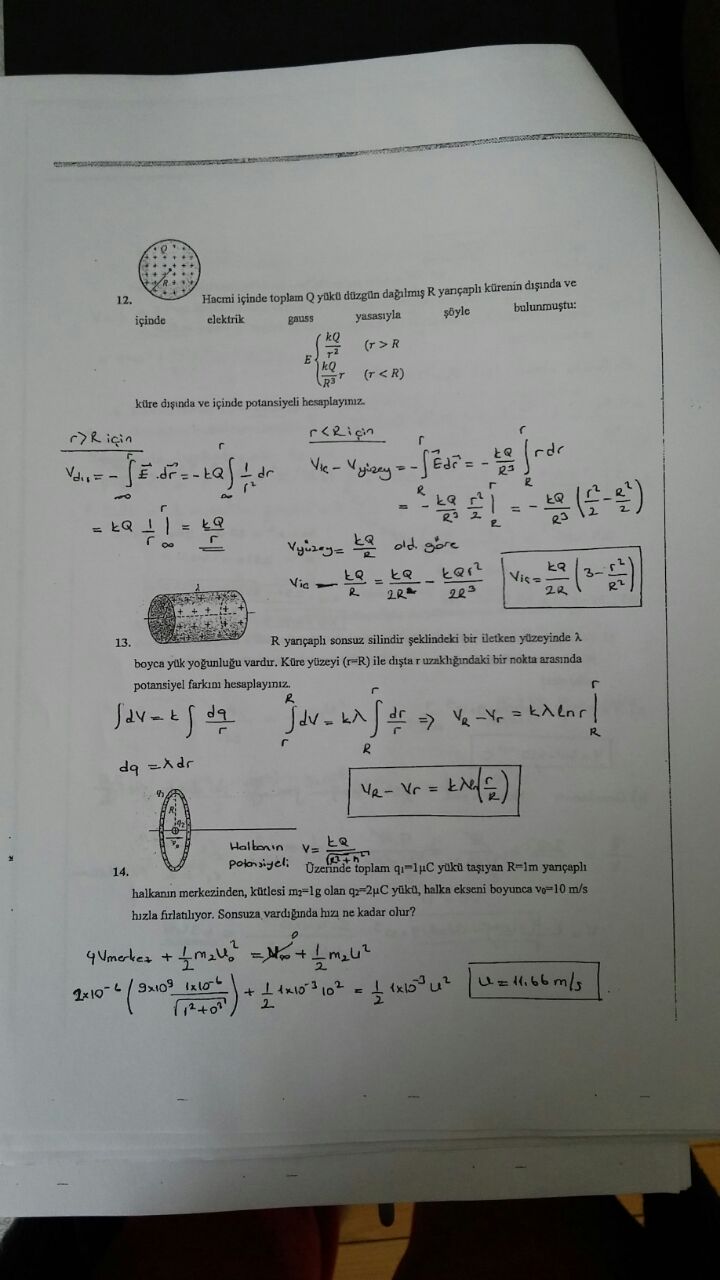 Q
R
12. Hacmi içinde toplam Q yükü düzgün dağılmış R yarıçaplı kürenin dışında ve
içinde elektrik gauss yasasıyla şöyle bulunmuştu:
E { kQ/r² (r > R
kQ/R³ r (r < R)
küre dışında ve içinde potansiyeli hesaplayınız.
r>R için
V_dış = - ∫_∞^r E⃗ . dr⃗ = -kQ ∫_∞^r 1/r² dr
= kQ 1/r |_∞^r = kQ/r
r<R için
Viç - Vyüzey = - ∫_R^r E⃗dr⃗ = - kQ/R³ ∫_R^r r dr
= - kQ/R³ r²/2 |_R^r = - kQ/R³ (r²/2 - R²/2)
Vyüzey = kQ/R old. göre
Viç - kQ/R = kQ/2R - kQr²/2R³
Viç = kQ/2R (3 - r²/R²)
λ
13. R yarıçaplı sonsuz silindir şeklindeki bir iletken yüzeyinde λ
boyca yük yoğunluğu vardır. Küre yüzeyi (r=R) ile dışta r uzaklığındaki bir nokta arasında
potansiyel farkını hesaplayınız.
∫dV = k ∫ dq/r
∫_r^R dV = kλ ∫_R^r dr/r => V_R - V_r = kλ ln r |_R^r
dq = λdr
V_R - V_r = kλ ln(r/R)
q₁
R
q₂
v₀
Halkanın
potansiyeli
V = kQ/√(R²+h²)
14. Üzerinde toplam q₁=1μC yükü taşıyan R=1m yarıçaplı
halkanın merkezinden, kütlesi m₂=1g olan q₂=2μC yükü, halka ekseni boyunca v₀=10 m/s
hızla fırlatılıyor. Sonsuza vardığında hızı ne kadar olur?
qVmerkez + 1/2 m₂U₀² = V∞ 0 + 1/2 m₂U²
2x10⁻⁶ (9x10⁹ 1x10⁻⁶/√(1²+0²)) + 1/2 1x10⁻³ 10² = 1/2 1x10⁻³ U²
U = 11.66 m/s